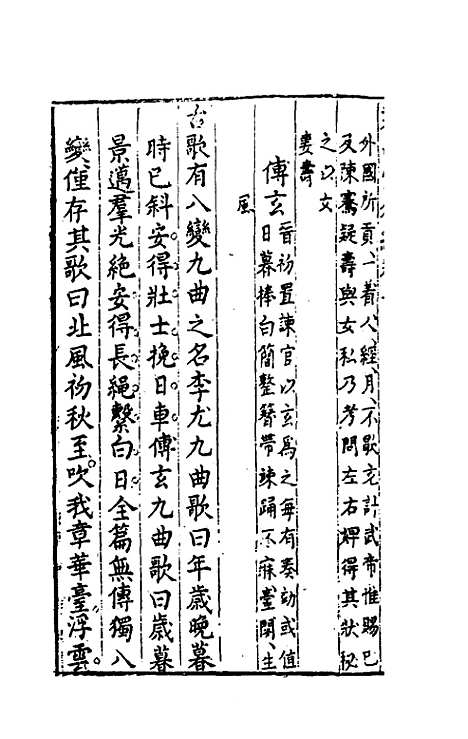 外國所貢一着人經月不歇充計武帝惟賜已
及陳騫疑壽與女私乃考問左右婢得其狀秘
之以女
妻壽
傅玄
晉初置諫官以玄為之每有奏劾或值
日暮捧白簡整簪帶竦踊不寐臺閣生
風
古歌有八變九曲之名李尤九曲歌曰年歲晚暮
時已斜安得壯士挽日車傅玄九曲歌曰歲暮
景邁羣光絶安得長繩繫白日全篇無傳獨八
變僅存其歌曰北風初秋至吹我章華臺浮雲